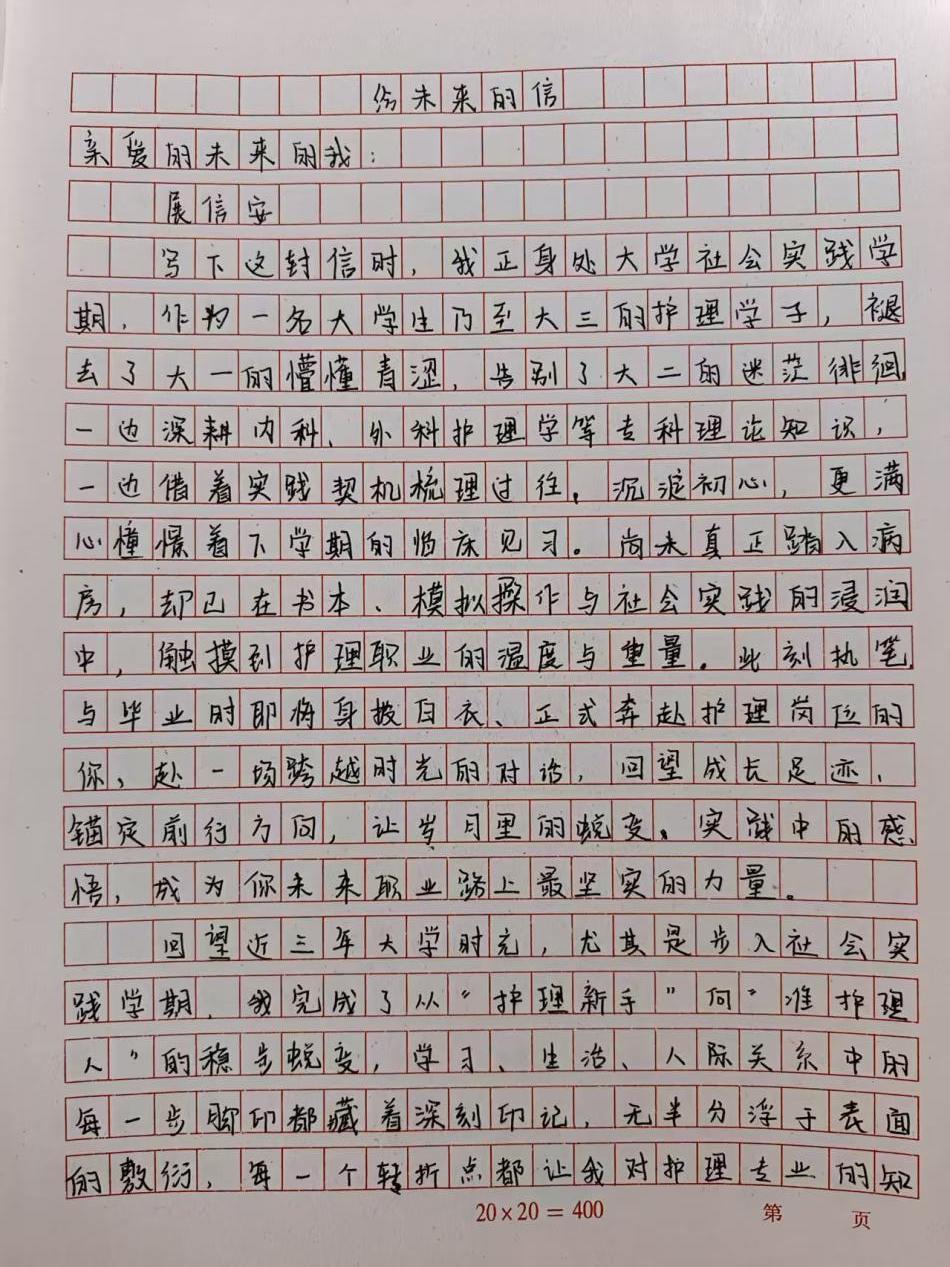 给未来的信
亲爱的未来的我：
展信安
写下这封信时，我正身处大学社会实践学
期，作为一名大学生乃至大三的护理学子，褪
去了大一的懵懂青涩，告别了大二的迷茫徘徊，
一边深耕内科、外科护理学等专科理论知识，
一边借着实践契机梳理过往，沉淀初心，更满
心憧憬着下学期的临床见习。尚未真正踏入病
房，却已在书本、模拟操作与社会实践的浸润
中，触摸到护理职业的温度与重量。此刻执笔，
与毕业时即将身披白衣、正式奔赴护理岗位的
你，赴一场跨越时光的对话，回望成长足迹，
锚定前行方向，让岁月里的蜕变、实践中的感
悟，成为你未来职业路上最坚实的力量。
回望近三年大学时光，尤其是步入社会实
践学期，我完成了从“护理新手”向“准护理
人”的稳步蜕变，学习、生活、人际关系中的
每一步脚印都藏着深刻印记，无半分浮于表面
的敷衍，每一个转折点都让我对护理专业的知
20×20=400 第 页